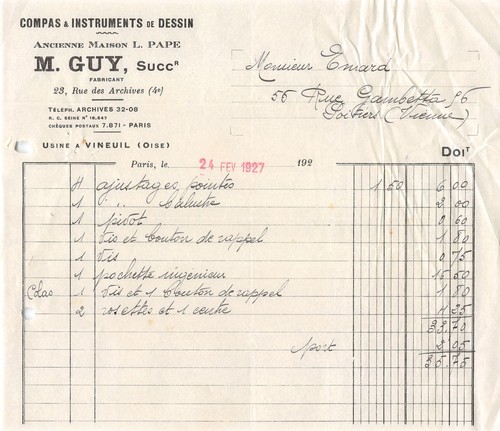 COMPAS & INSTRUMENTS DE DESSIN
ANCIENNE MAISON L. PAPE
M. GUY, SUCCR
FABRICANT
23, Rue des Archives (4e)
TÉLÉPH. ARCHIVES 32-08
R. C. SEINE No 16.647
CHÈQUES POSTAUX 7.871 - PARIS
USINE A VINEUIL (OISE)
Monsieur Emard
56 Rue Gambetta 56
Poitiers (Vienne)
Paris, le 24 FEV 1927 192
DOIT
4 ajustages pointes 1 50 6 00
1 " balustre 2 00
1 pivot 0 60
1 vis et bouton de rappel 1 80
1 vis 0 75
1 pochette ingenieur 15 50
Colas 1 vis et 1 bouton de rappel 1 80
2 rosettes et 1 contre 4 25
33,70
port 2 05
35.75